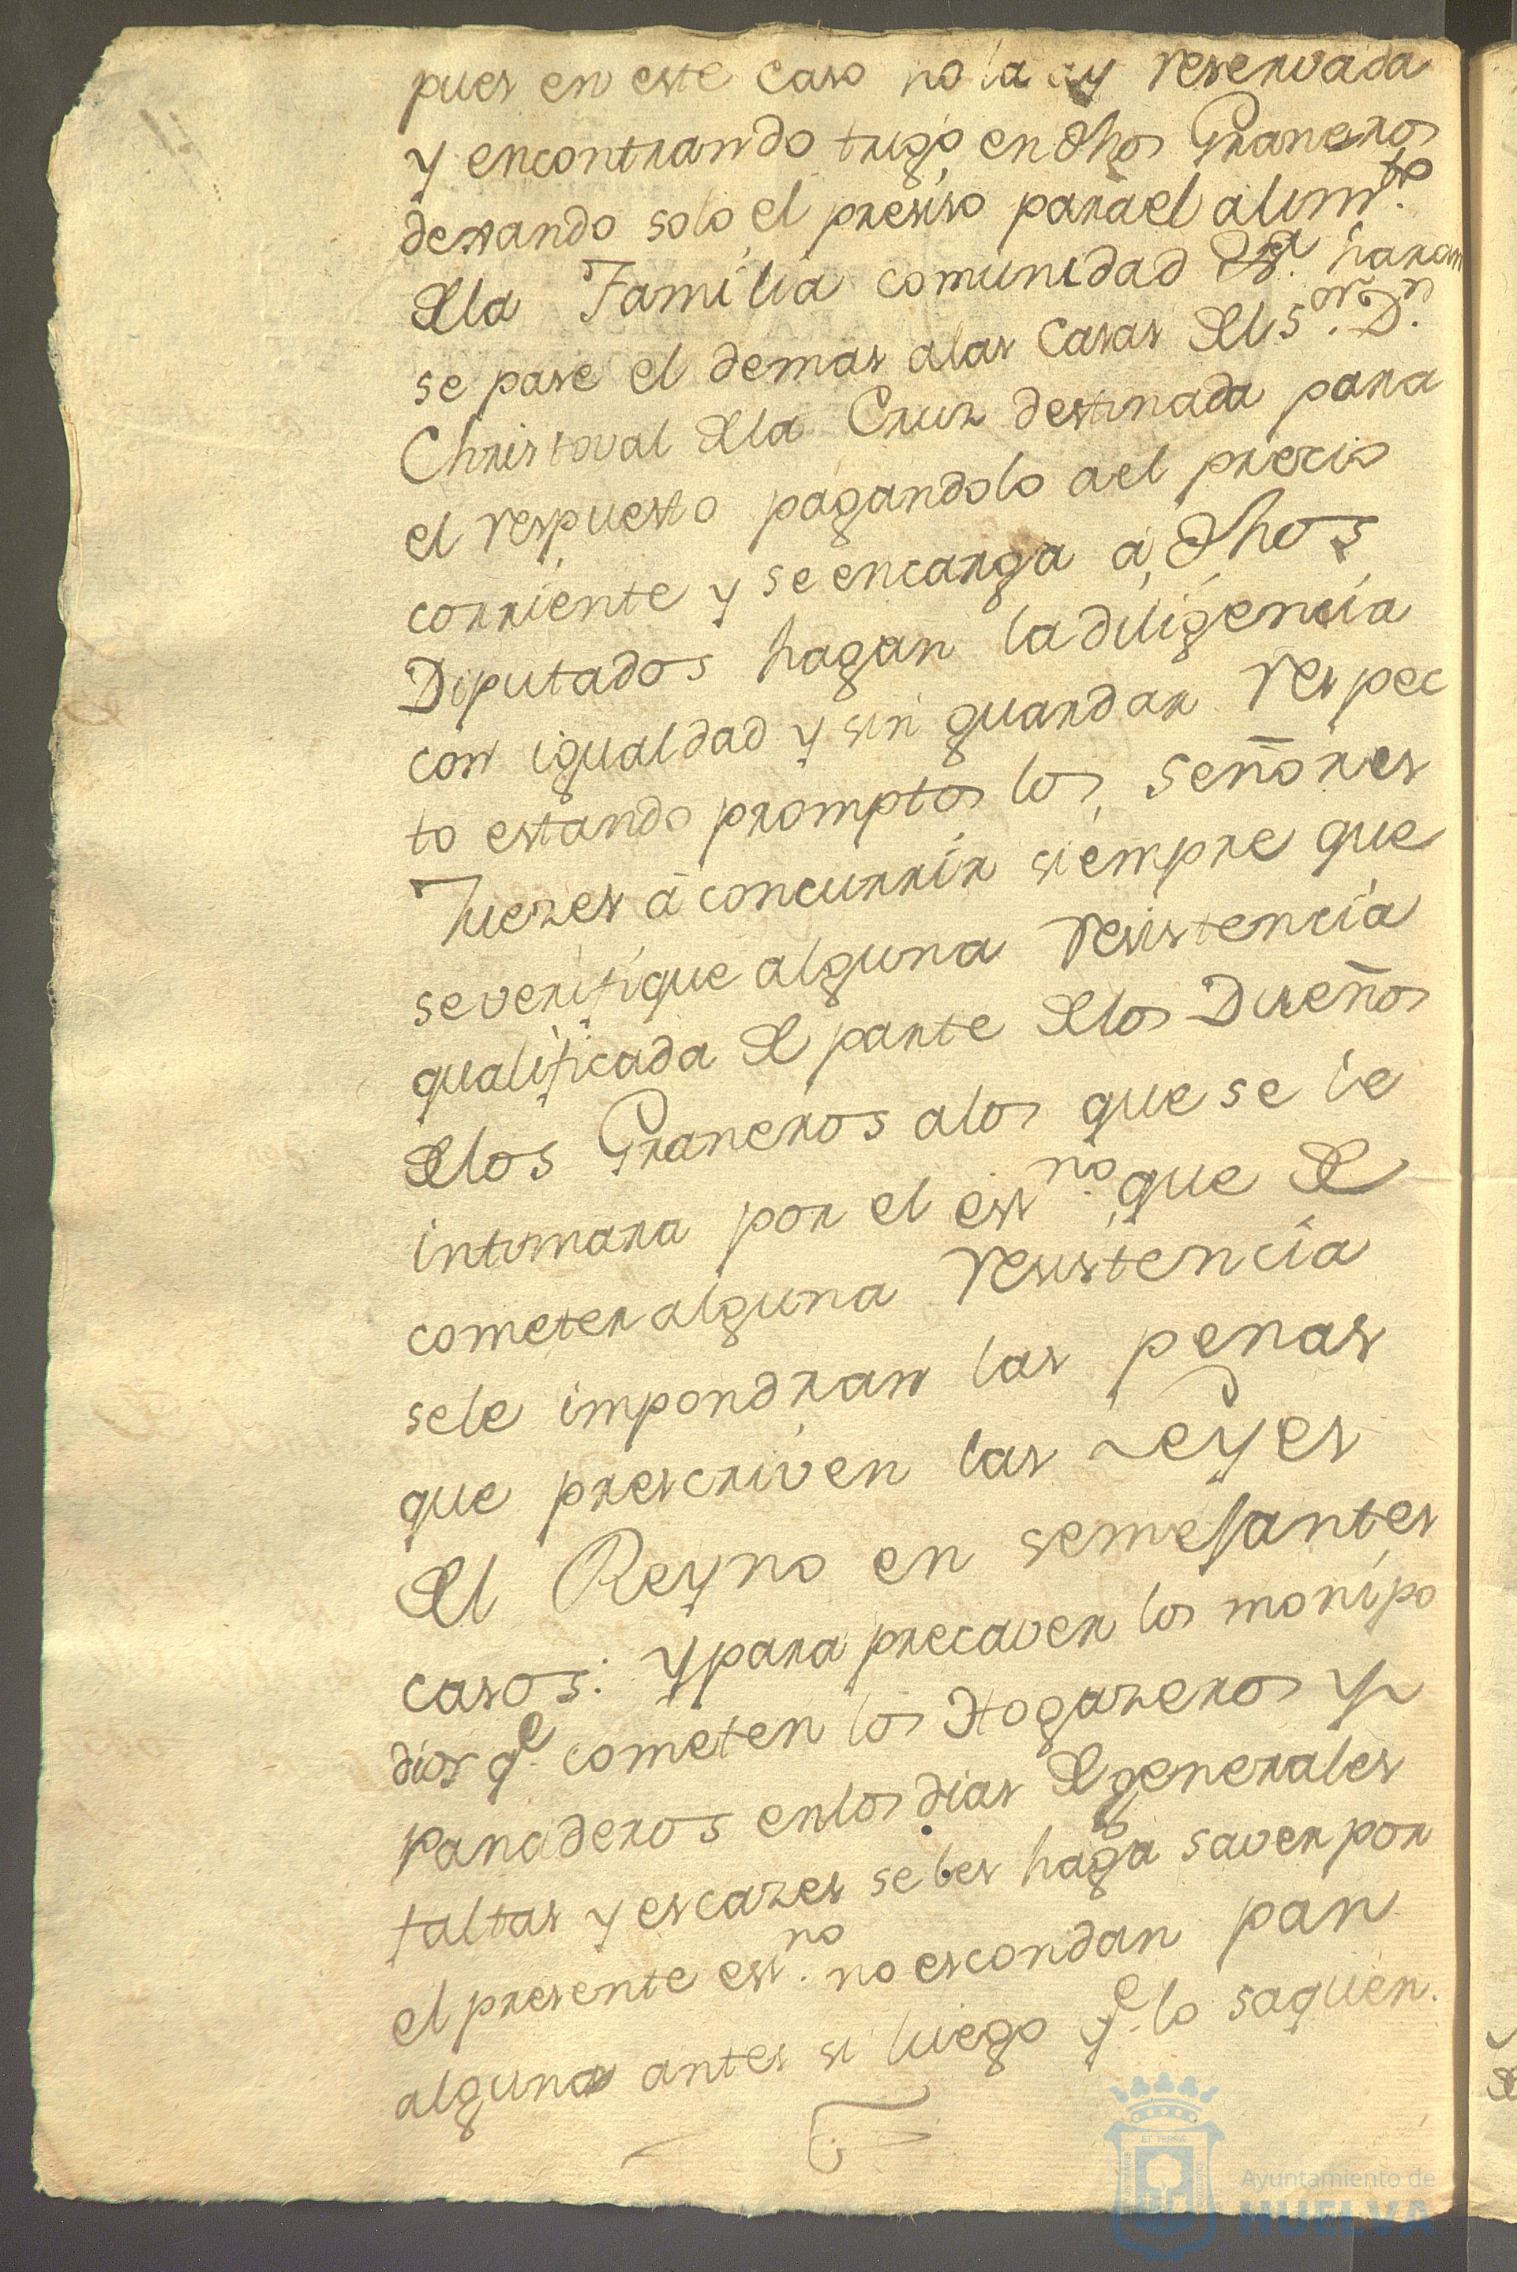 pues en este caso no la ay reservada
y encontrando trigo en dhos Graneros
dexando solo el presiso para el alimto.
de la Familia comunidad &a. haran
se pase el demas a las Casas del Sor. Dn.
Christoval de la Cruz destinada para
el respuesto pagandolo a el precio
corriente y se encarga á dhos
Diputados hagan la diligencia
con igualdad y sin guardar respec
to estando promptos los señores
Juezes á concurrir siempre que
se verifique alguna resistencia
qualificada de parte de los Dueños
de los Graneros a los que se le
intimara por el essno. que de
cometer alguna resistencia
se le impondran las penas
que prescriven las Leyes
del Reyno en semejantes
casos: y para precaver los monipo
dios qe. cometen los Hogazeros y
Panaderos en los dias de generales
faltas y escazes se les haga saver por
el presente essno. no escondan pan
alguno antes si luego qe. lo saquen.
Ayuntamiento de
HUELVA